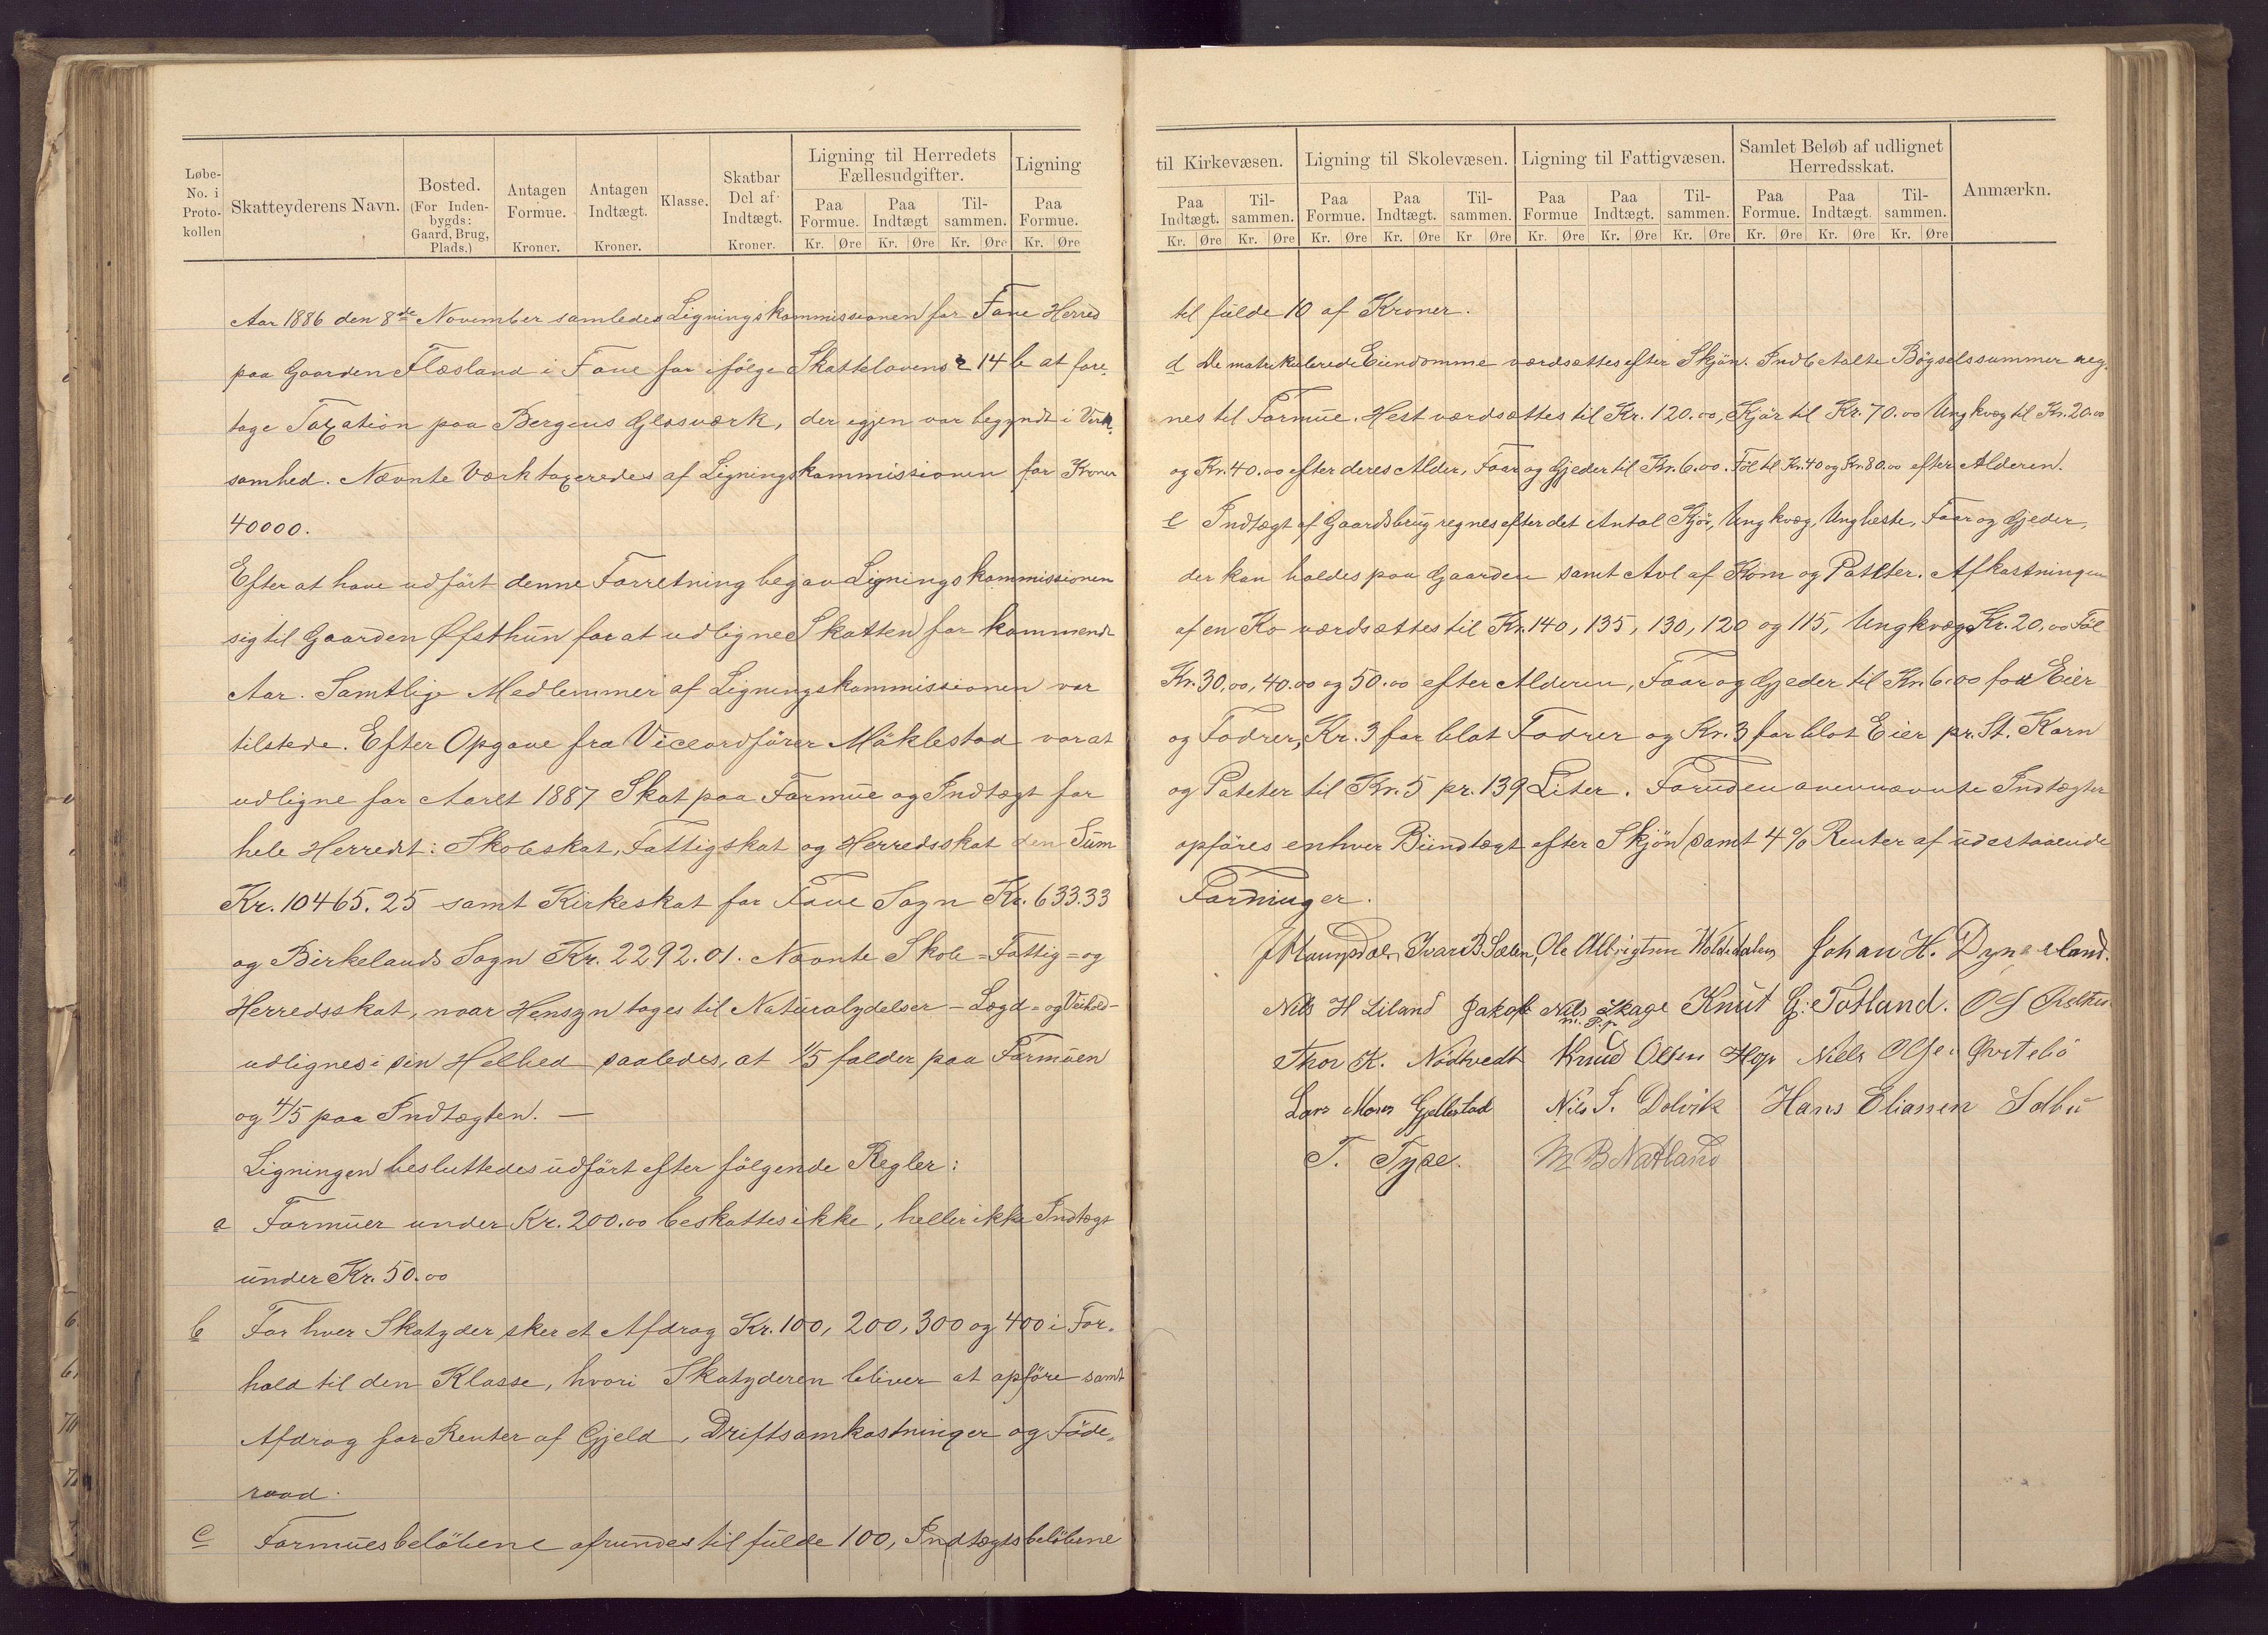 Løbe-No. i Proto-kollen
Skatteyderens Navn.
Bosted. (For Inden-bygds: Gaard, Brug, Plads.)
Antagen Formue. Kroner.
Antagen Indtægt. Kroner.
Klasse.
Skatbar Del af Indtægt. Kroner.
Ligning til Herredets Fællesudgifter.
Paa Formue. Paa Indtægt Til-sammen.
Kr. Øre Kr. Øre Kr. Øre
Ligning
Paa Formue.
Kr. Øre
Aar 1886 den 8de November samledes Ligningskommissionen for Fane Herred
paa Gaarden Flæsland i Fane for ifølge Skattelovens § 14 b at fore-
tage Taxation paa Bergens Glasværk, der igjen var begyndt i Virk-
somhed. Nævnte Værk taxeredes af Ligningskommissionen for Kroner
40000.
Efter at have udført denne Forretning begav Ligningskommissionen
sig til Gaarden Øfsthun for at udligne Skatten for kommende
Aar. Samtlige Medlemmer af Ligningskommissionen var
tilstede. Efter Opgave fra Viceordfører Möklestad var at
udligne for Aaret 1887 Skat paa Formue og Indtægt for
hele Herredet: Skoleskat, Fattigskat og Herredsskat den Sum
Kr. 10465.25 samt Kirkeskat for Fane Sogn Kr. 633.33
og Birkelands Sogn Kr. 2292.01. Nævnte Skole- Fattig- og
Herredsskat, naar Hensyn tages til Naturalydelser - Lægd- og Veihold-
udlignes i sin Helhed saaledes, at 1/5 falder paa Formuen
og 4/5 paa Indtægten. —
Ligningen besluttedes udført efter følgende Regler:
a Formuer under Kr. 200.00 beskattes ikke, heller ikke Indtægt
under Kr. 50.00
b For hver Skatyder sker et Afdrag Kr. 100, 200, 300 og 400 i For-
hold til den Klasse, hvori Skatyderen bliver at opføre samt
Afdrag for Renter af Gjeld, Driftsomkostninger og Føde-
raad.
c Formuesbeløbene afrundes til fulde 100, Indtægtsbeløbene
til Kirkevæsen.
Paa Indtægt. Til-sammen.
Kr. Øre Kr. Øre
Ligning til Skolevæsen.
Paa Formue. Paa Indtægt. Til-sammen.
Kr. Øre Kr. Øre Kr Øre
Ligning til Fattigvæsen.
Paa Formue Paa Indtægt. Til-sammen.
Kr. Øre Kr. Øre Kr. Øre
Samlet Beløb af udlignet Herredsskat.
Paa Formue. Paa Indtægt. Til-sammen.
Kr. Øre Kr. Øre Kr. Øre
Anmærkn.
til fulde 10 af Kroner.
d De matrikulerede Eiendomme værdsættes efter Skjøn. Indbetalte Bøgselssummer reg-
nes til Formue. Hest værdsættes til Kr. 120.00, Kjør til Kr. 70.00 Ungkvæg til Kr. 20.00
og Kr. 40.00 efter deres Alder, Faar og Gjeder til Kr. 6.00. Føl til Kr. 40 og Kr. 80.00 efter Alderen.
e Indtægt af Gaardsbrug regnes efter det Antal Kjør, Ungkvæg, Ungheste, Faar og Gjeder,
der kan holdes paa Gaarden samt Avl af Korn og Poteter. Afkastningen
af en Ko værdsættes til Kr. 140, 135, 130, 120 og 115, Ungkvæg Kr. 20,00 Føl
Kr. 30,00, 40.00 og 50.00 efter Alderen, Faar og Gjeder til Kr. 6.00 for Eier
og Fodrer, Kr. 3 for blot Fodrer og Kr. 3 for blot Eier pr. St. Korn
og Poteter til Kr. 5 pr. 139 Liter. Foruden ovennævnte Indtægter
opføres enhver Biindtægt efter Skjøn samt 4 % Renter af udestaaende
Fordringer.
Ivar B Sælen, Ole Johan H.
Nils H Liland Jakob Nils Skage Knut G. Totland.
m. P. p
Thor K. Nødtvedt Knud Olsen Hop Niels Olsen
Lars Gjellestad Nils S. Dolvik Hans Eliassen
T. M B Natland